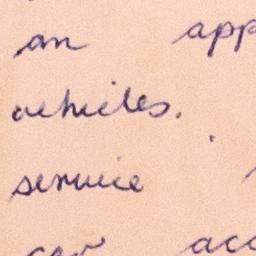 an app
vehicles.
service
car acc